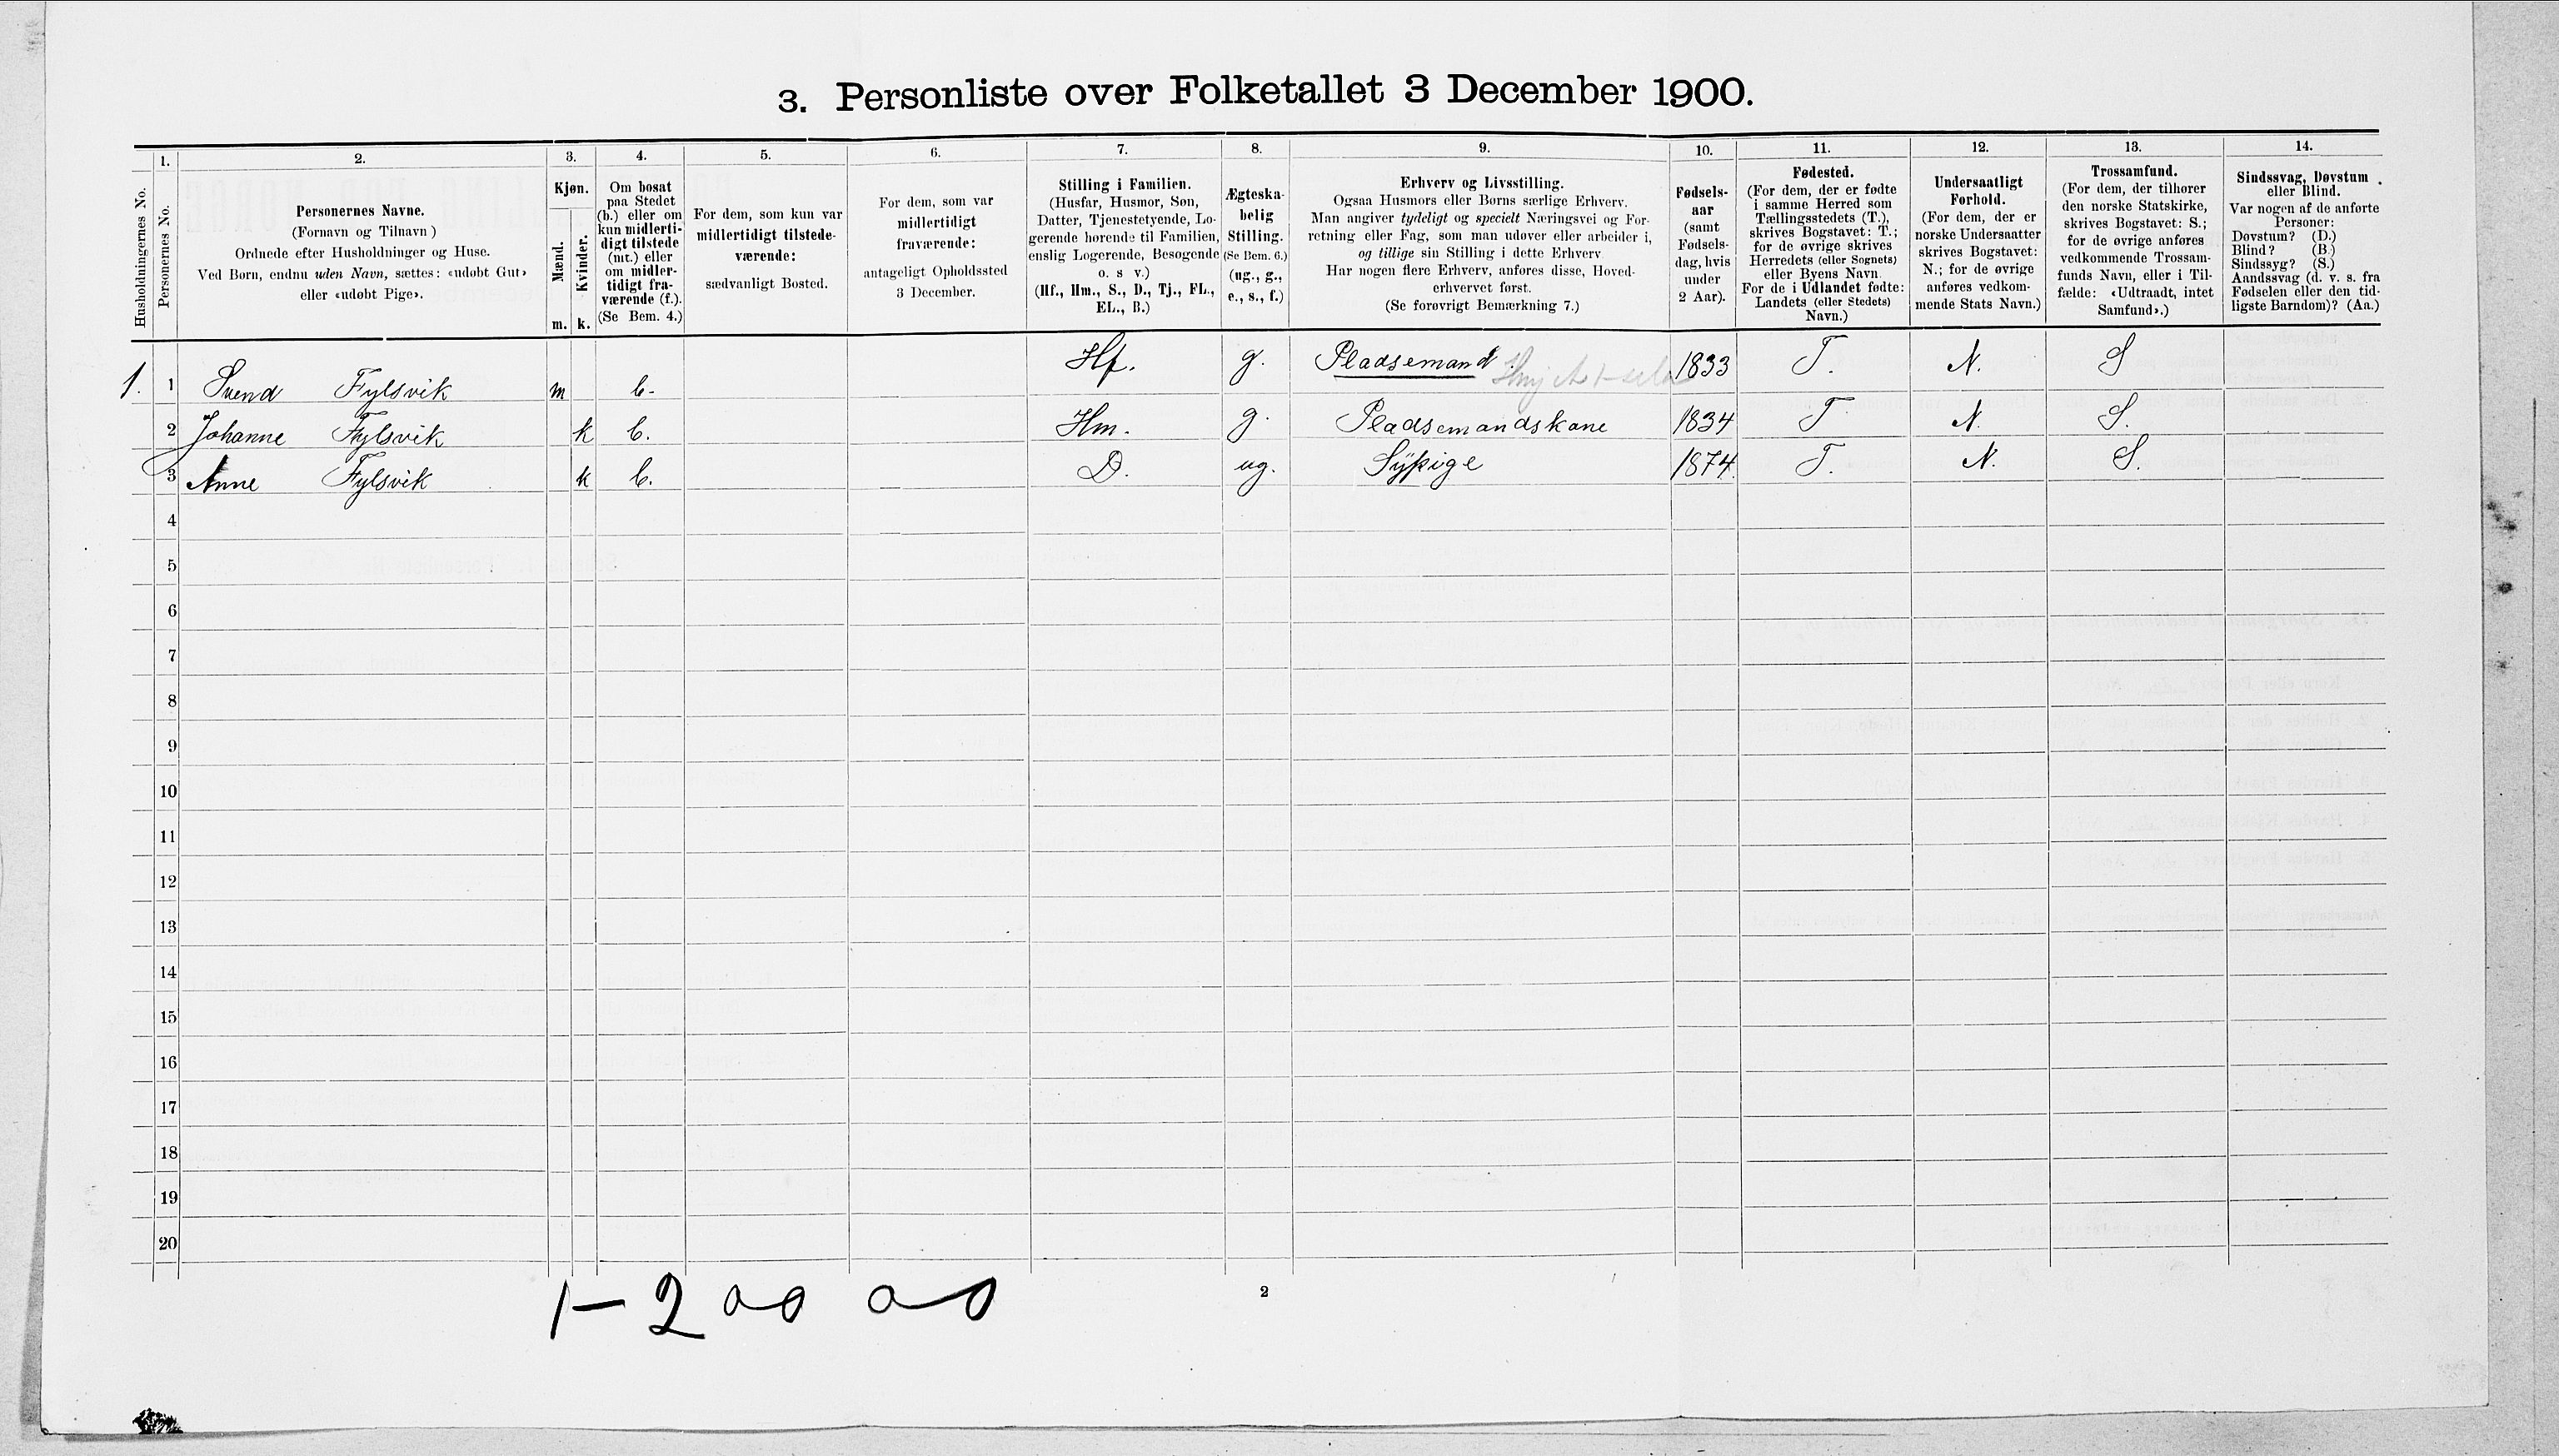 3. Personliste over Folketallet 3 December 1900.
1. 2. 3. 4. 5. 6. 7. 8. 9. 10. 11. 12. 13. 14.
Husholdningernes No.
Personernes No.
Personernes Navne.
(Fornavn og Tilnavn)
Ordnede efter Husholdninger og Huse.
Ved Børn, endnu uden Navn, sættes: «udøbt Gut»
eller «udøbt Pige».
Kjøn.
Mænd.
Kvinder.
m. k.
Om bosat
paa Stedet
(b.) eller om
kun midlerti-
digt tilstede
(mt.) eller
om midler-
tidigt fra-
værende (f.).
(Se Bem. 4.)
For dem, som kun var
midlertidigt tilstede-
værende:
sædvanligt Bosted.
For dem, som var
midlertidigt
fraværende:
antageligt Opholdssted
3 December.
Stilling i Familien.
(Husfar, Husmor, Søn,
Datter, Tjenestetyende, Lo-
gerende hørende til Familien,
enslig Logerende, Besøgende
o. s v.)
(Hf., Hm., S., D., Tj., FL.,
EL., B.)
Ægteska-
belig
Stilling.
(Se Bem. 6.)
(ug., g.,
e., s., f.)
Erhverv og Livsstilling.
Ogsaa Husmors eller Børns særlige Erhverv.
Man angiver tydeligt og specielt Næringsvei og For-
retning eller Fag, som man udøver eller arbeider i,
og tillige sin Stilling i dette Erhverv
Har nogen flere Erhverv, anføres disse, Hoved-
erhvervet først.
(Se forøvrigt Bemærkning 7.)
Fødsels-
aar
(samt
Fødsels-
dag, hvis
under
2 Aar).
Fødested.
(For dem, der er fødte
i samme Herred som
Tællingsstedets (T.),
skrives Bogstavet: T.;
for de øvrige skrives
Herredets (eller Sognets)
eller Byens Navn.
For de i Udlandet fødte:
Landets (eller Stedets)
Navn.)
Undersaatligt
Forhold.
(For dem, der er
norske Undersaatter
skrives Bogstavet:
N.; for de øvrige
anføres vedkom-
mende Stats Navn.)
Trossamfund.
(For dem, der tilhører
den norske Statskirke,
skrives Bogstavet: S.;
for de øvrige anføres
vedkommende Trossam-
funds Navn, eller i Til-
fælde: «Udtraadt, intet
Samfund».)
Sindssvag, Døvstum
eller Blind.
Var nogen af de anførte
Personer:
Døvstum? (D.)
Blind? (B.)
Sindssyg? (S.)
Aandssvag (d. v. s. fra
Fødselen eller den tid-
ligste Barndom)? (Aa.)
1. 1 Svend Fylsvik m b. Hf. g. Pladsemand 1833 T. N. S
2 Johanne Fylsvik k b. Hm. g. Pladsemandskone 1834 T N. S.
3 Anne Fylsvik k b. D. ug. Sypige 1874 T. N. S.
4
5
6
7
8
9
10
11
12
13
14
15
16
17
18
19
20
1-2 00 00
2